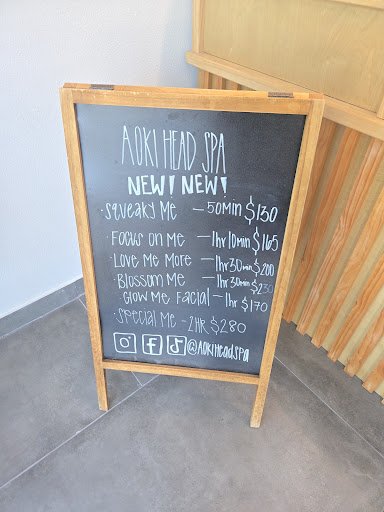 AOKI HEAD SPA
NEW! NEW!
· SQUEAKY ME — 50MIN $130
· FOCUS ON ME — 1hr 10min $165
· LOVE ME MORE — 1hr 30min $200
· BLOSSOM ME — 1hr 30min $230
· GLOW ME FACIAL — 1hr $170
· SPECIAL ME - 2HR $280
@AOKIHEADSPA